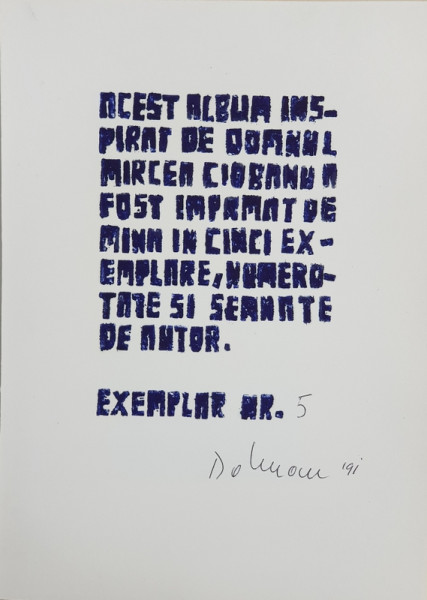 ACEST ALBUM INS-
PIRAT DE DOMNUL
MIRCEA CIOBANU A
FOST IMPRMAT DE
MINA IN CINCI EX-
EMPLARE, NUMERO-
TATE SI SEMNATE
DE AUTOR.
EXEMPLAR NR. 5
'91